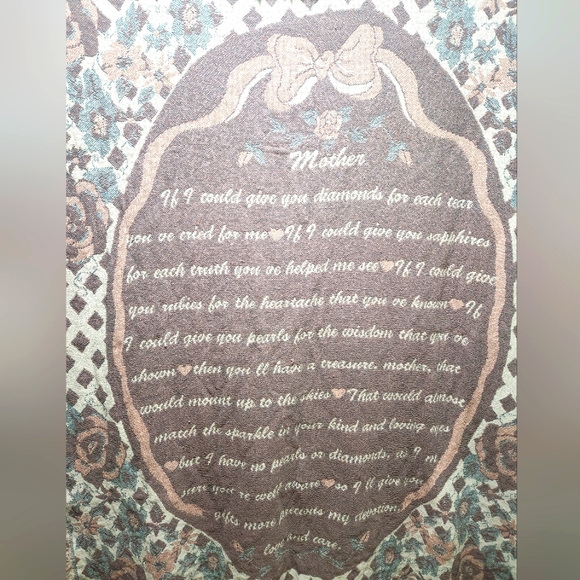 Mother
If I could give you diamonds for each tear
you ve cried for me ♥ If I could give you sapphires
for each truth you ve helped me see ♥ If I could give
you rubies for the heartache that you ve known ♥ If
I could give you pearls for the wisdom that you ve
shown ♥ then you ll have a treasure, mother, that
would mount up to the skies ♥ That would almost
match the sparkle in your kind and loving eyes
♥ but I have no pearls or diamonds, as I m
sure you re well aware ♥ so I ll give you
gifts more precious my devotion,
love and care.